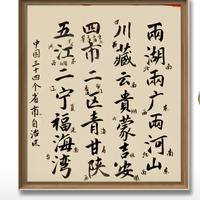 兩湖兩广兩河山
川藏云貴蒙吉安
四市二区青甘陕
五江二宁福海湾
中国三十四个省市自治区